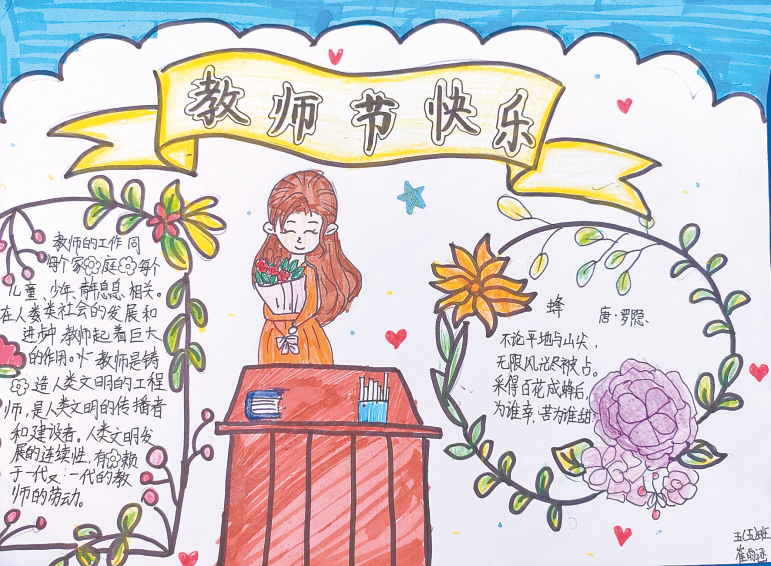 教师节快乐
教师的工作同
每个家庭每个
儿童少年青年息息相关。
在人类类社会的发展和
进步中教师起着巨大
的作用。教师是铸
造人类文明的工程
师,是人类文明的传播者
和建设者。人类文明发
展的连续性,有赖
于一代又一代的教
师的劳动。
蜂 唐·罗隐
不论平地与山尖,
无限风光尽被占。
采得百花成蜂后,
为谁辛苦为谁甜
五(五)班
崔雨涵